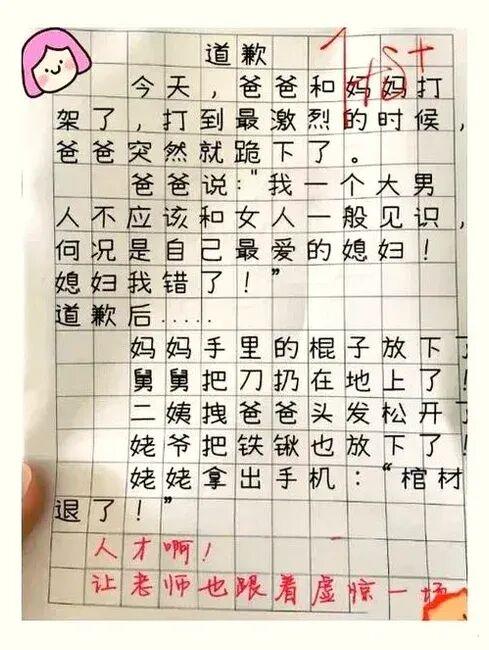 道歉
今天，爸爸和妈妈打
架了，打到最激烈的时候，
爸爸突然就跪下了。
爸爸说："我一个大男
人不应该和女人一般见识，
何况是自己最爱的媳妇！
媳妇我错了！”
道歉后.....
妈妈手里的棍子放下了
舅舅把刀扔在地上了！
二姨拽爸爸头发松开了
姥爷把铁锹也放下了！
姥姥拿出手机：“棺材
退了！”
人才啊！
让老师也跟着虚惊一场